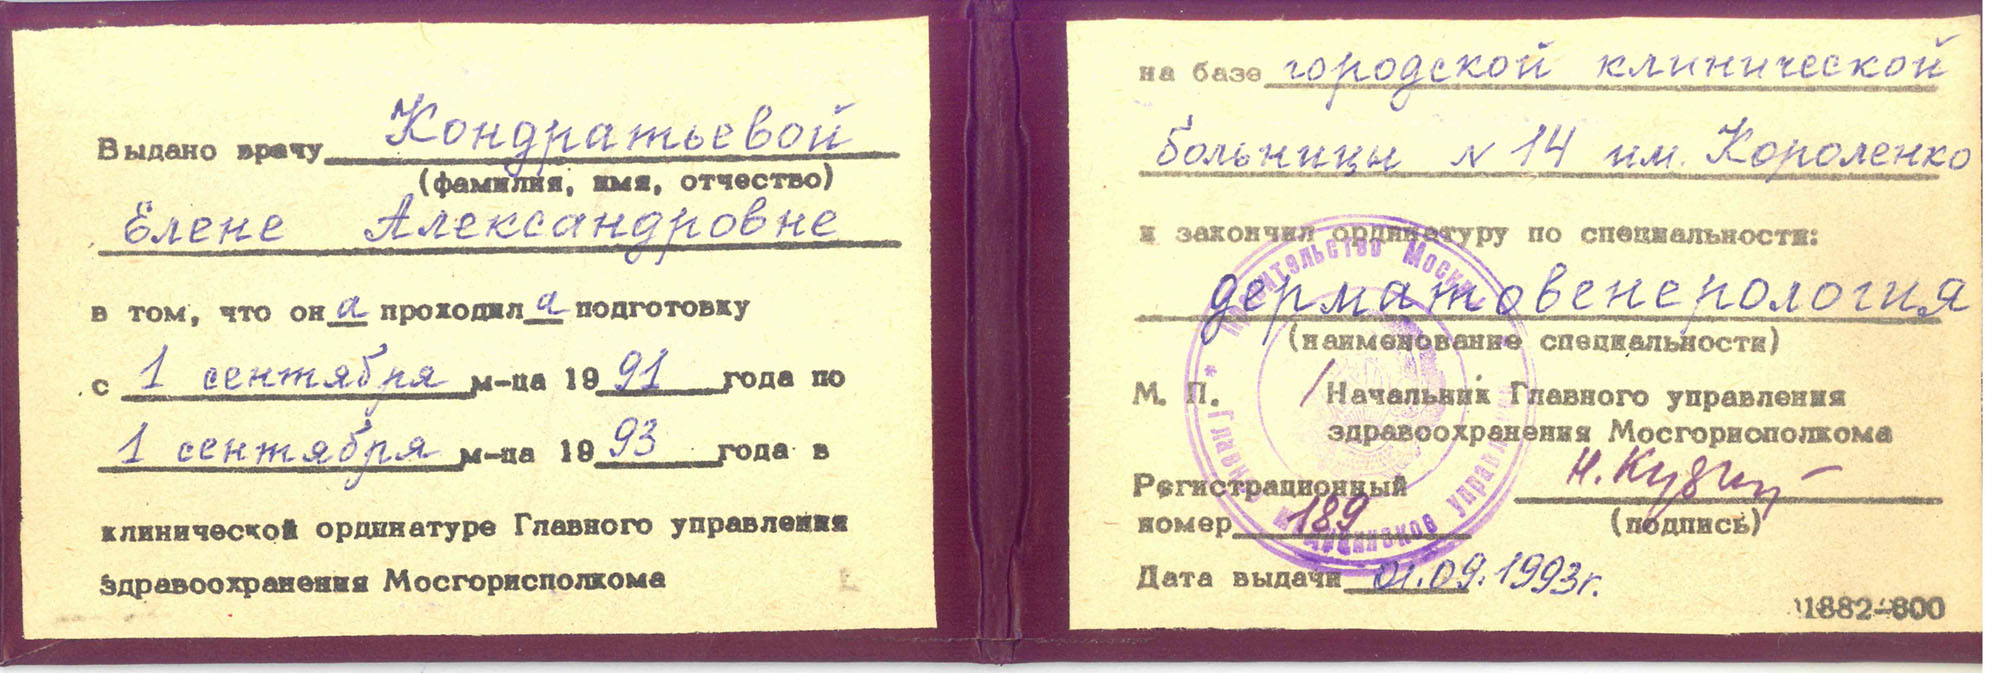 Выдано врачу Кондратьевой
(фамилия, имя, отчество)
Елене Александровне
в том, что он а проходил а подготовку
с 1 сентября м-ца 19 91 года по
1 сентября м-ца 19 93 года в
клинической ординатуре Главного управления
здравоохранения Мосгорисполкома
на базе городской клинической
больницы N 14 им. Короленко
и закончил ординатуру по специальности:
дерматовенерология
(наименование специальности)
М. П. / Начальник Главного управления
здравоохранения Мосгорисполкома
Регистрационный
номер 189 (подпись)
Дата выдачи 01.09.1993г.
11882-800
Правительство Москвы
* Главное медицинское управление